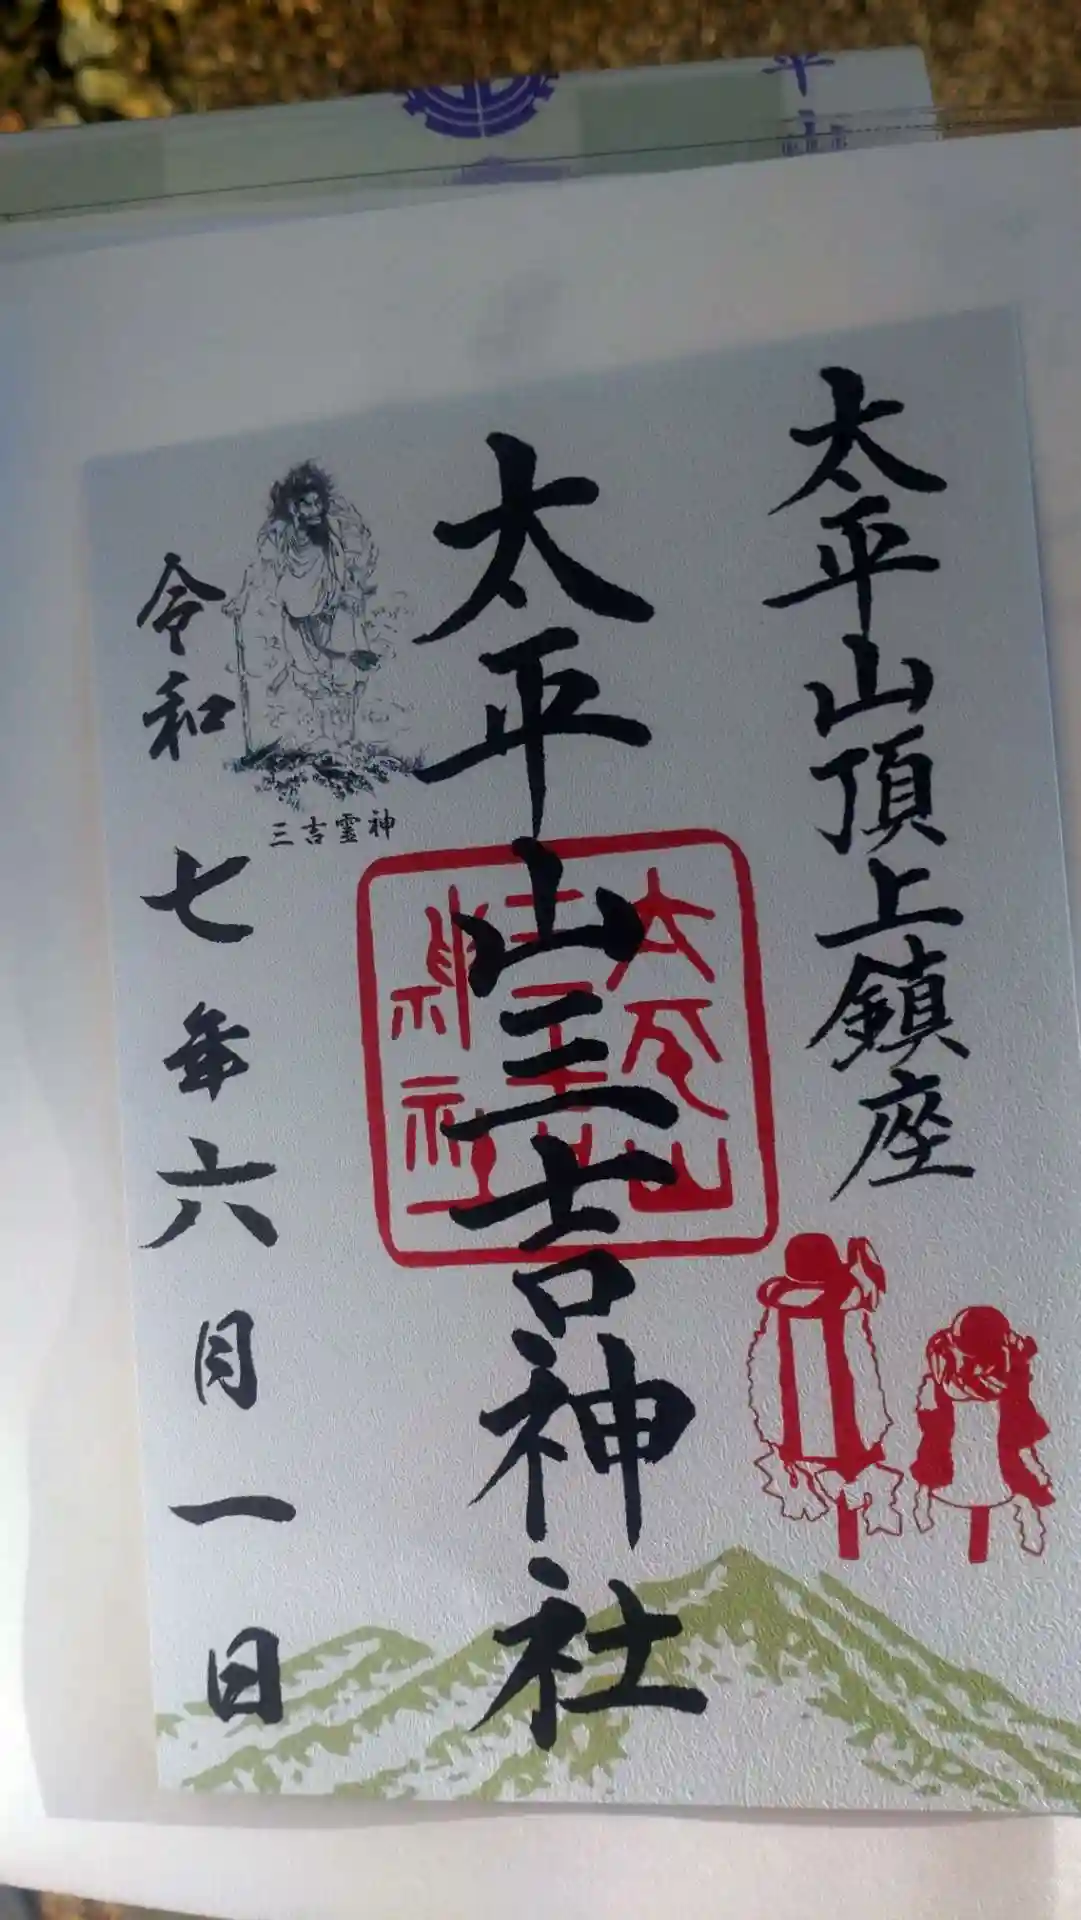 太平山頂上鎮座
太平山三吉神社
太平山
三吉山
神社
三吉霊神
令和七年六月一日
平